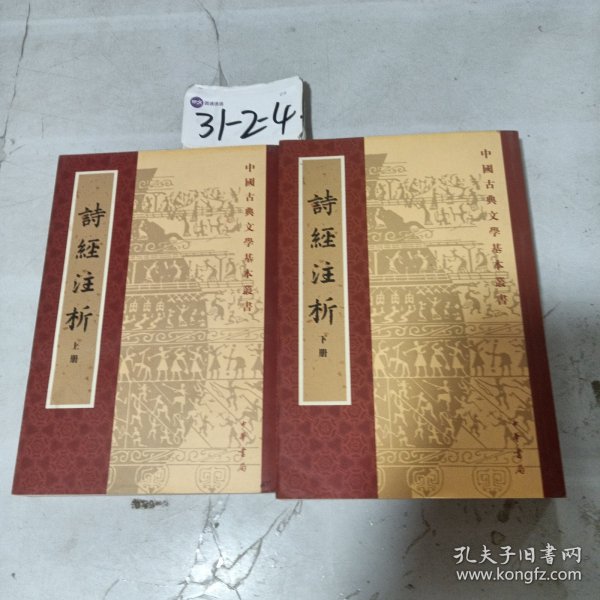 31-2-4
詩經注析
上册
中國古典文學基本叢書
中華書局
詩經注析
下册
中國古典文學基本叢書
中華書局
孔夫子旧书网
www.kongfz.com